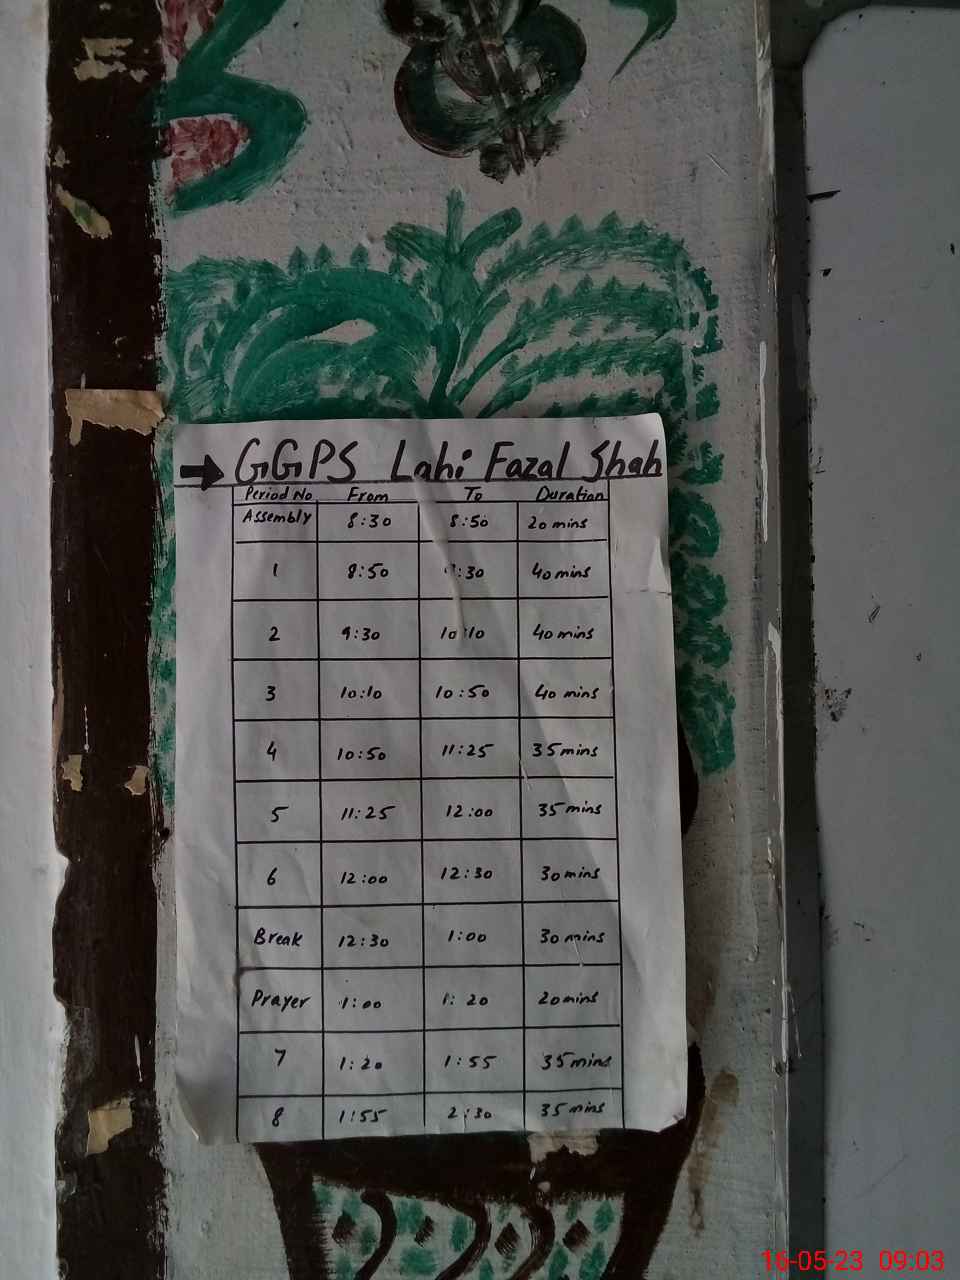 GGPS Lahi Fazal Shah
Period No From To Duration
Assembly 8:30 8:50 20 mins
1 8:50 :30 40 mins
2 9:30 10:10 40 mins
3 10:10 10:50 40 mins
4 10:50 11:25 35 mins
5 11:25 12:00 35 mins
6 12:00 12:30 30 mins
Break 12:30 1:00 30 mins
Prayer 1:00 1:20 20 mins
7 1:20 1:55 35 mins
8 1:55 2:30 35 mins
16-05-23 09:03